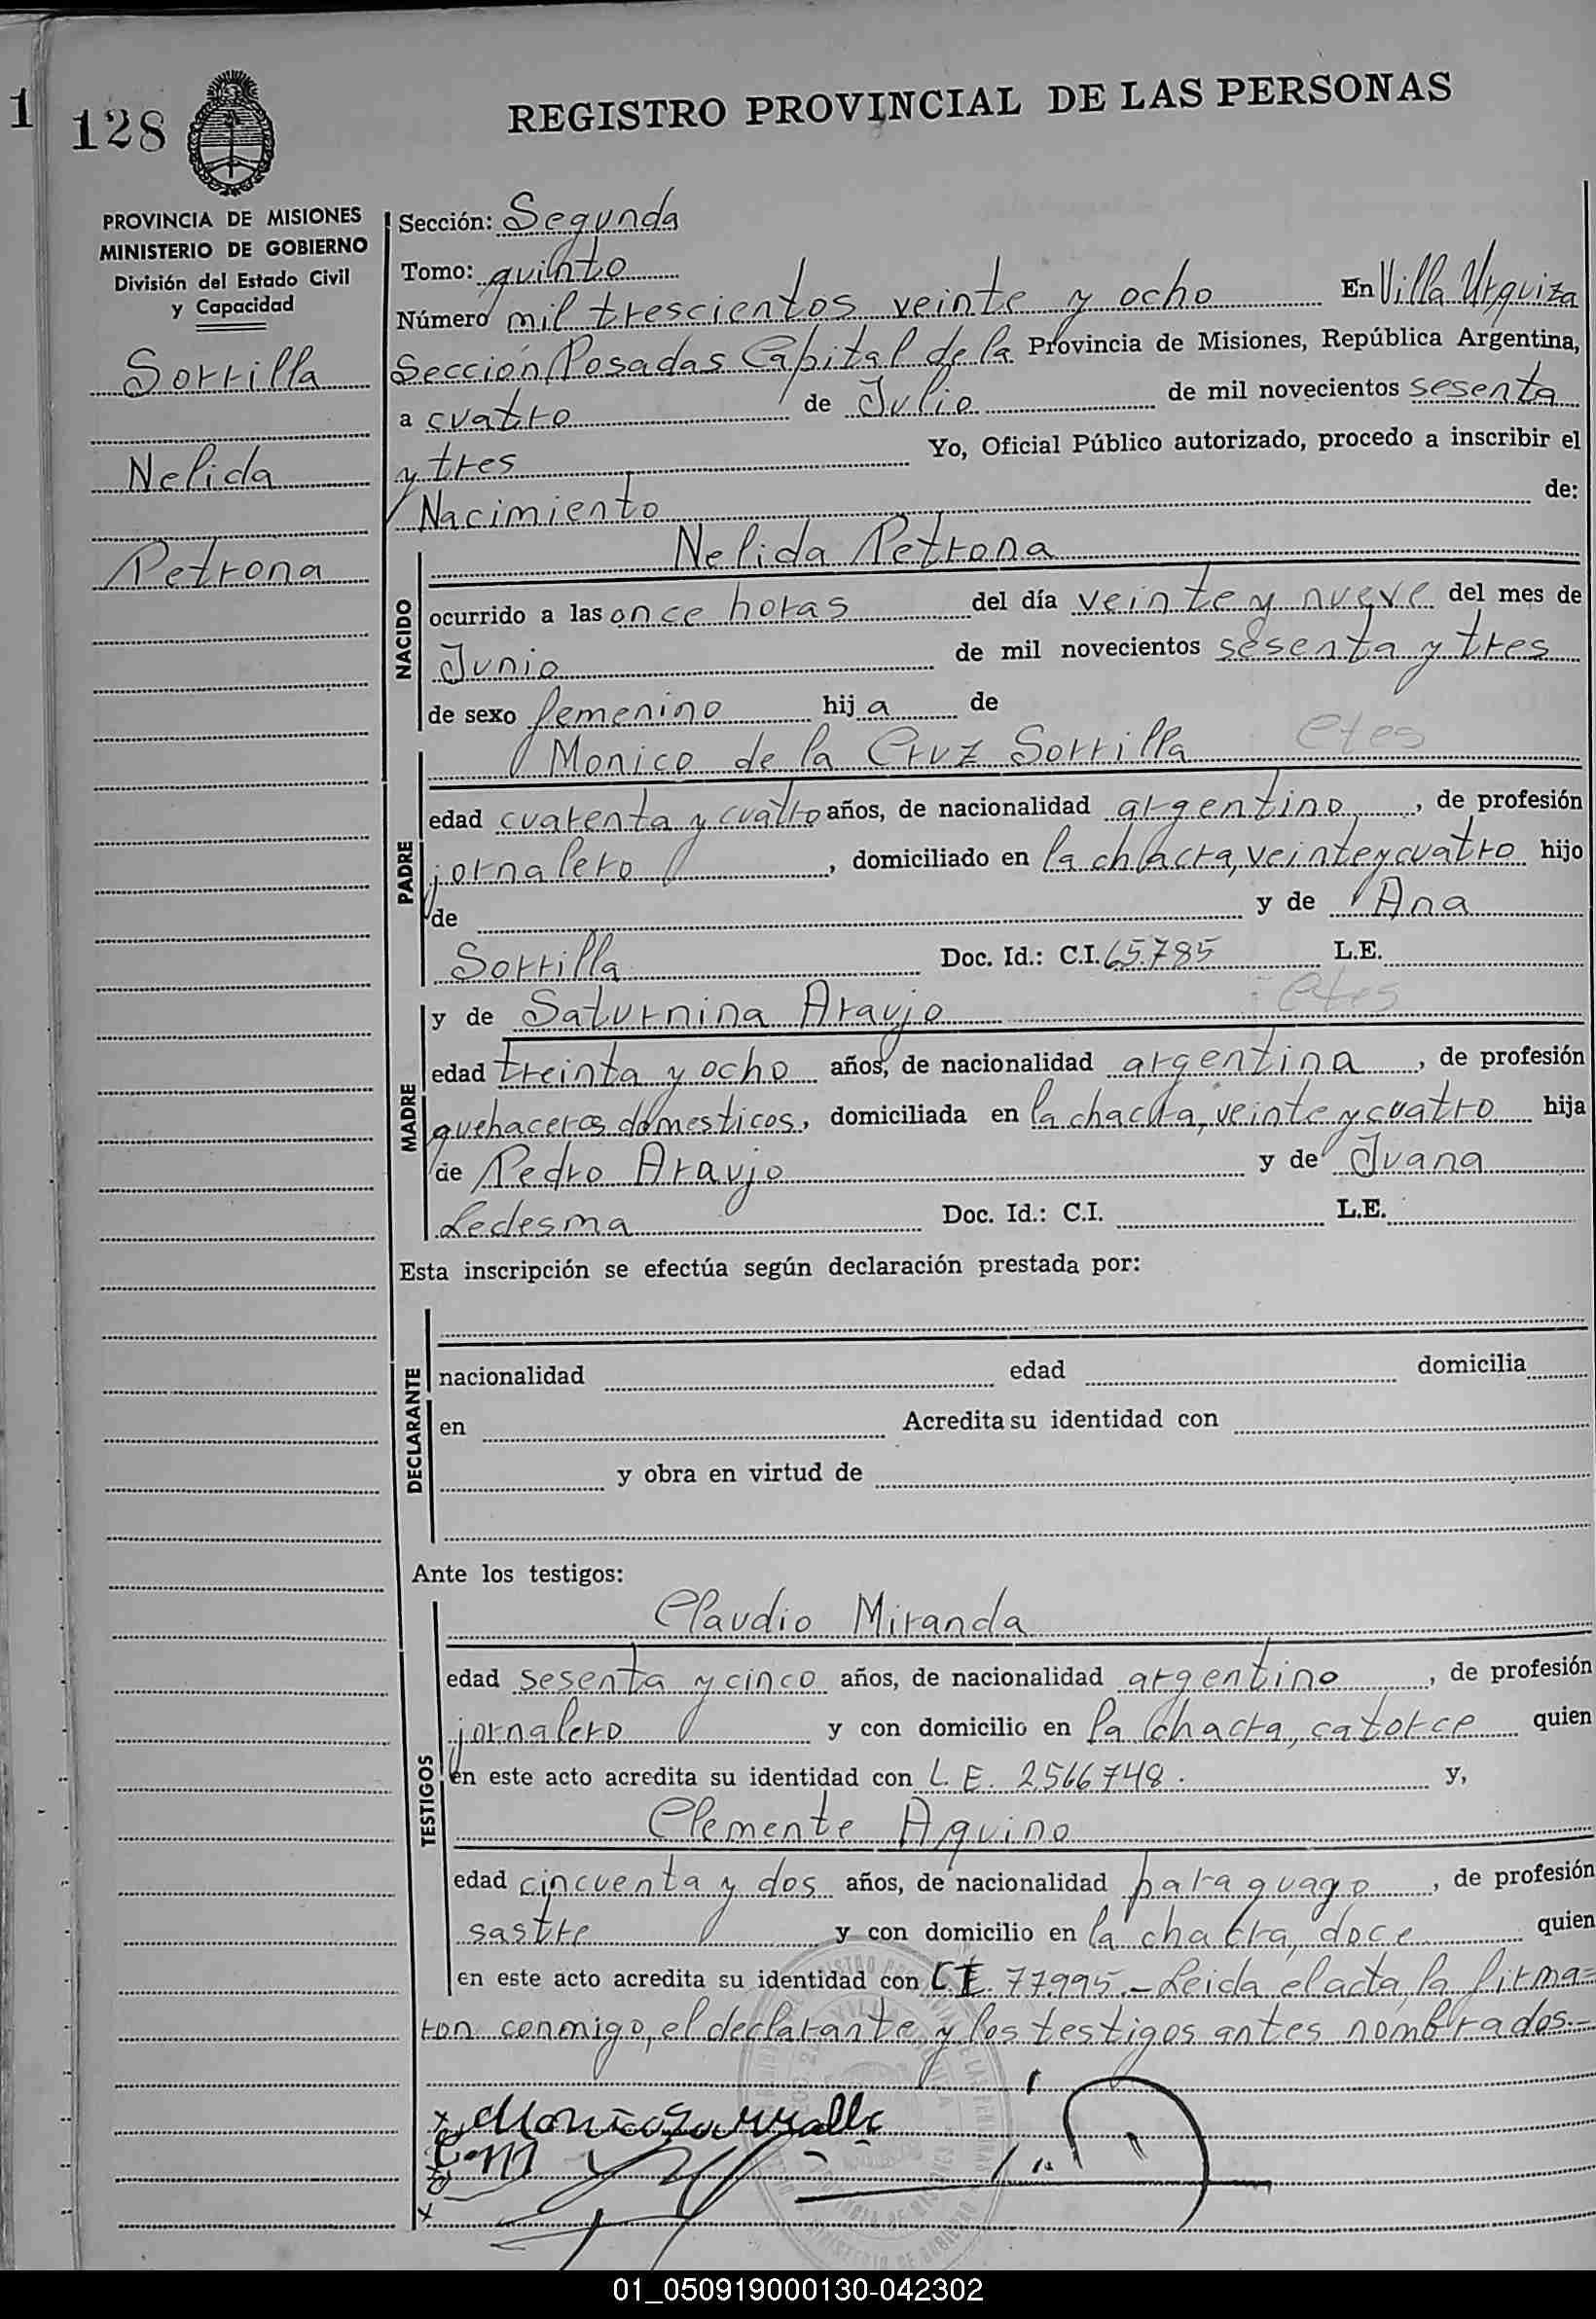 1
128
REGISTRO PROVINCIAL DE LAS PERSONAS
PROVINCIA DE MISIONES
MINISTERIO DE GOBIERNO
División del Estado Civil
y Capacidad
Sorrilla
Nelida
Petrona
Sección: Segunda
Tomo: quinto
Número mil trescientos veinte y ocho En Villa Urquiza
Sección Posadas Capital de la Provincia de Misiones, República Argentina,
a cuatro de Julio de mil novecientos sesenta
y tres Yo, Oficial Público autorizado, procedo a inscribir el
Nacimiento de:
NACIDO
Nelida Petrona
ocurrido a las once horas del día veinte y nueve del mes de
Junio de mil novecientos sesenta y tres
de sexo femenino hij a de
PADRE
Monico de la Cruz Sorrilla
edad cuarenta y cuatro años, de nacionalidad argentino, de profesión
jornalero, domiciliado en la chacra, veinte y cuatro hijo
de y de Ana
Sorrilla Doc. Id.: C.I. 65.785 L.E.
MADRE
y de Saturnina Araujo
edad treinta y ocho años, de nacionalidad argentina, de profesión
quehaceres domesticos, domiciliada en la chacra, veinte y cuatro hija
de Pedro Araujo y de Juana
Ledesma Doc. Id.: C.I. L.E.
Esta inscripción se efectúa según declaración prestada por:
DECLARANTE
nacionalidad edad domicilia
en Acredita su identidad con
y obra en virtud de
Ante los testigos:
TESTIGOS
Claudio Miranda
edad sesenta y cinco años, de nacionalidad argentino, de profesión
jornalero y con domicilio en la chacra, catorce quien
en este acto acredita su identidad con L.E. 2566748. y,
Clemente Aquino
edad cincuenta y dos años, de nacionalidad paraguayo, de profesión
sastre y con domicilio en la chacra, doce quien
en este acto acredita su identidad con C.I. 77.995 - Leida el acta, la firma=
ron conmigo, el declarante y los testigos antes nombrados.-
01_050919000130-042302